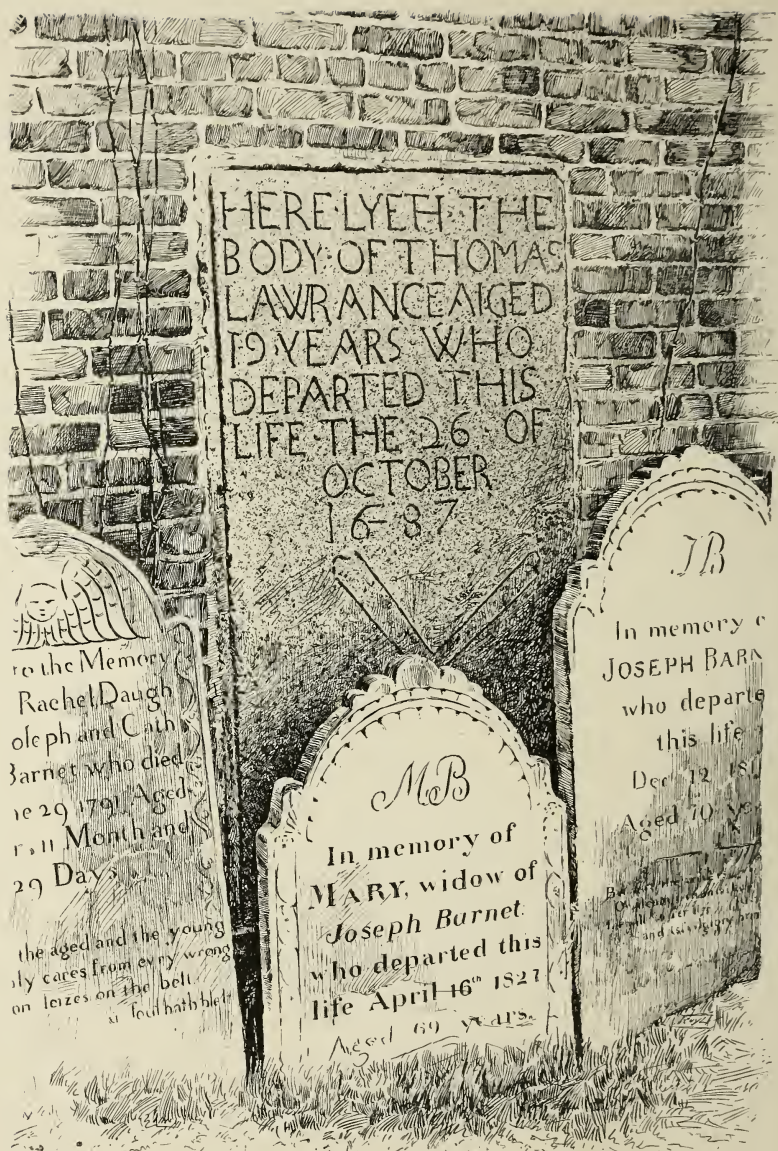 HERE·LYETH·THE
BODY·OF THOMAS
LAWRANCE AIGED
19 YEARS WHO
DEPARTED THIS
LIFE·THE 26 OF
OCTOBER
16-87
to the Memory
Rachel Daugh
oleph and Cath
Barnet who died
29 1791 Aged
11 Month and
29 Days
the aged and the young
cares from evry wrong
on leizes on the belt
foul hath
MB
In memory of
MARY, widow of
Joseph Barnet.
who departed this
life April 16th 1827
Aged 69 years.
JB
In memory
JOSEPH BARN
who departe
this life
Dec 12
Aged 70